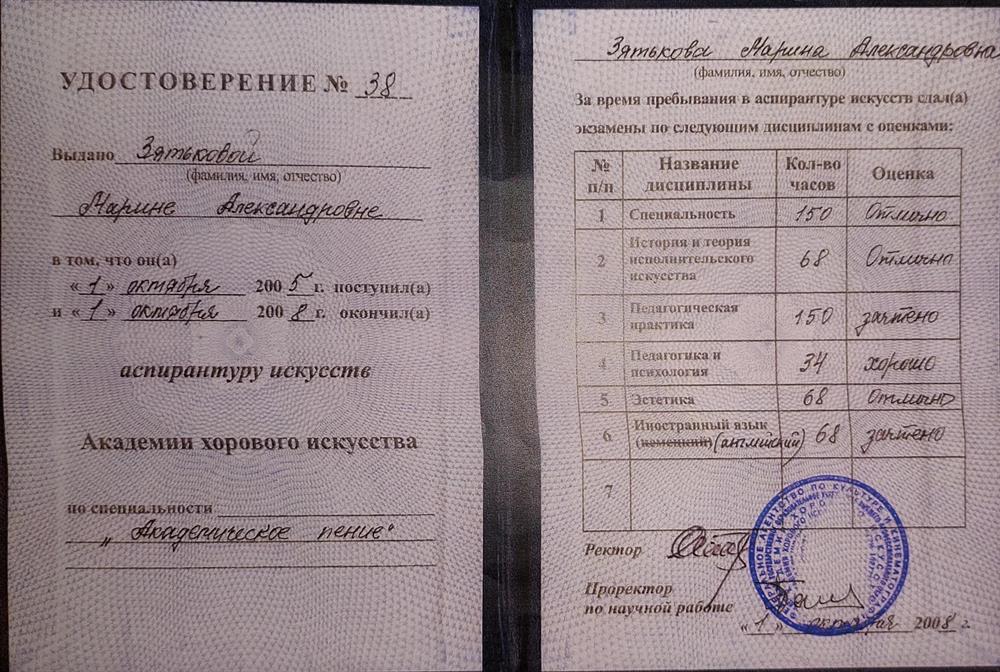 УДОСТОВЕРЕНИЕ № 38
Выдано Зятьковой
(фамилия, имя, отчество)
Марине Александровне
в том, что он(а)
« 1 » октября 2005 г. поступил(а)
и « 1 » октября 2008 г. окончил(а)
аспирантуру искусств
Академии хорового искусства
по специальности
„Академическое пение"
Зятькова Марина Александровна
(фамилия, имя, отчество)
За время пребывания в аспирантуре искусств сдал(а)
экзамены по следующим дисциплинам с оценками:
№ п/п Название дисциплины Кол-во часов Оценка
1 Специальность 150 Отлично
2 История и теория исполнительского искусства 68 Отлично
3 Педагогическая практика 150 зачтено
4 Педагогика и психология 34 хорошо
5 Эстетика 68 Отлично
6 Иностранный язык (немецкий) (английский) 68 зачтено
7
Ректор
Проректор
по научной работе
« 1 » октября 2008 г.